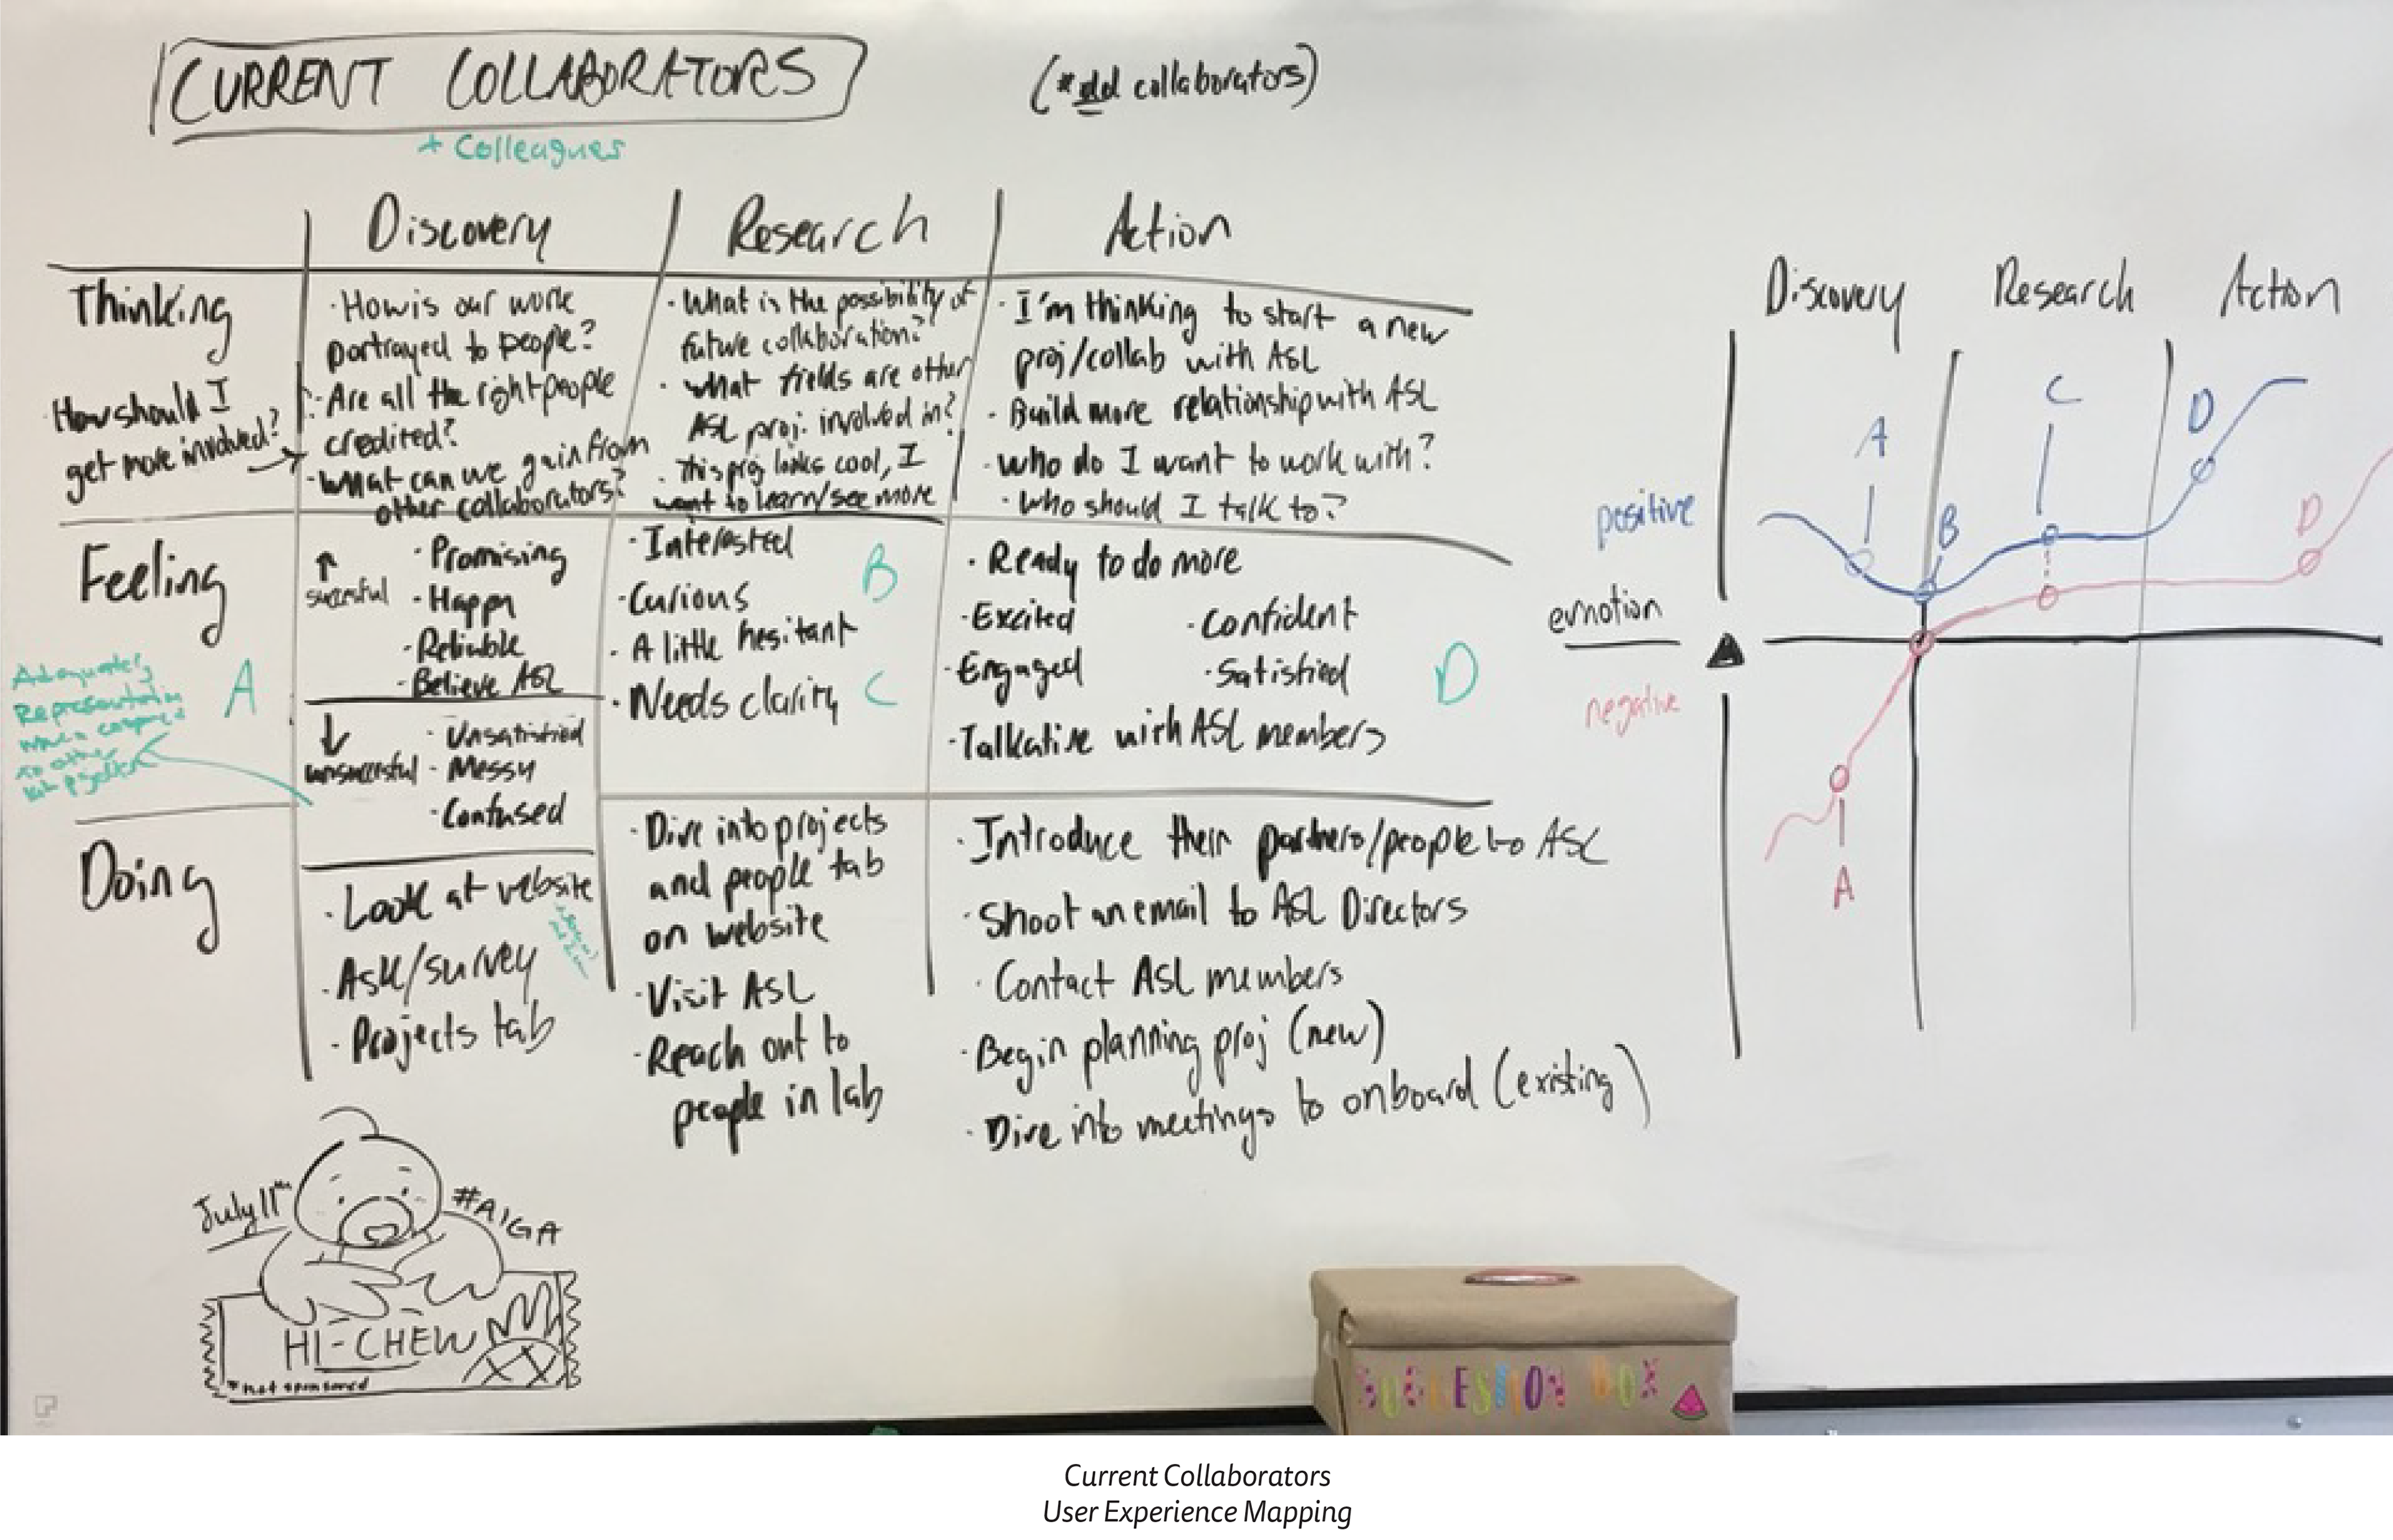 CURRENT COLLABORATORS
+ Colleagues
collaborators)
Discovery
Research
Action
Thinking
· How should I
get more involved?
· How is our work
portrayed to people?
· Are all the right people
credited?
· What can we gain from
other collaborators?
· What is the possibility of
future collaboration?
· what fields are other
ASL proj. involved in?
· This proj looks cool, I
want to learn/see more
· I'm thinking to start a new
proj/collab with ASL
· Build more relationship with ASL
· who do I want to work with?
· Who should I talk to?
Feeling
A
Representation
when
to other
↑
successful
· Promising
· Happy
· Reliable
· Believe ASL
↓
unsuccessful
· Unsatisfied
· Messy
· Confused
· Interested
· Curious
· A little hesitant
· Needs clarity
B
C
· Ready to do more
· Excited
· Confident
· Engaged
· Satisfied
· Talkative with ASL members
D
Doing
· Look at website
· Ask/survey
· Projects tab
· Dive into projects
and people tab
on website
· Visit ASL
· Reach out to
people in lab
· Introduce their partners/people to ASL
· Shoot an email to ASL Directors
· Contact ASL members
· Begin planning proj (new)
· Dive into meetings to onboard (existing)
Discovery
Research
Action
A
B
C
D
D
A
positive
emotion
negative
July 11th
#AIGA
HI-CHEW
*not sponsored
SUGGESTION BOX
Current Collaborators
User Experience Mapping